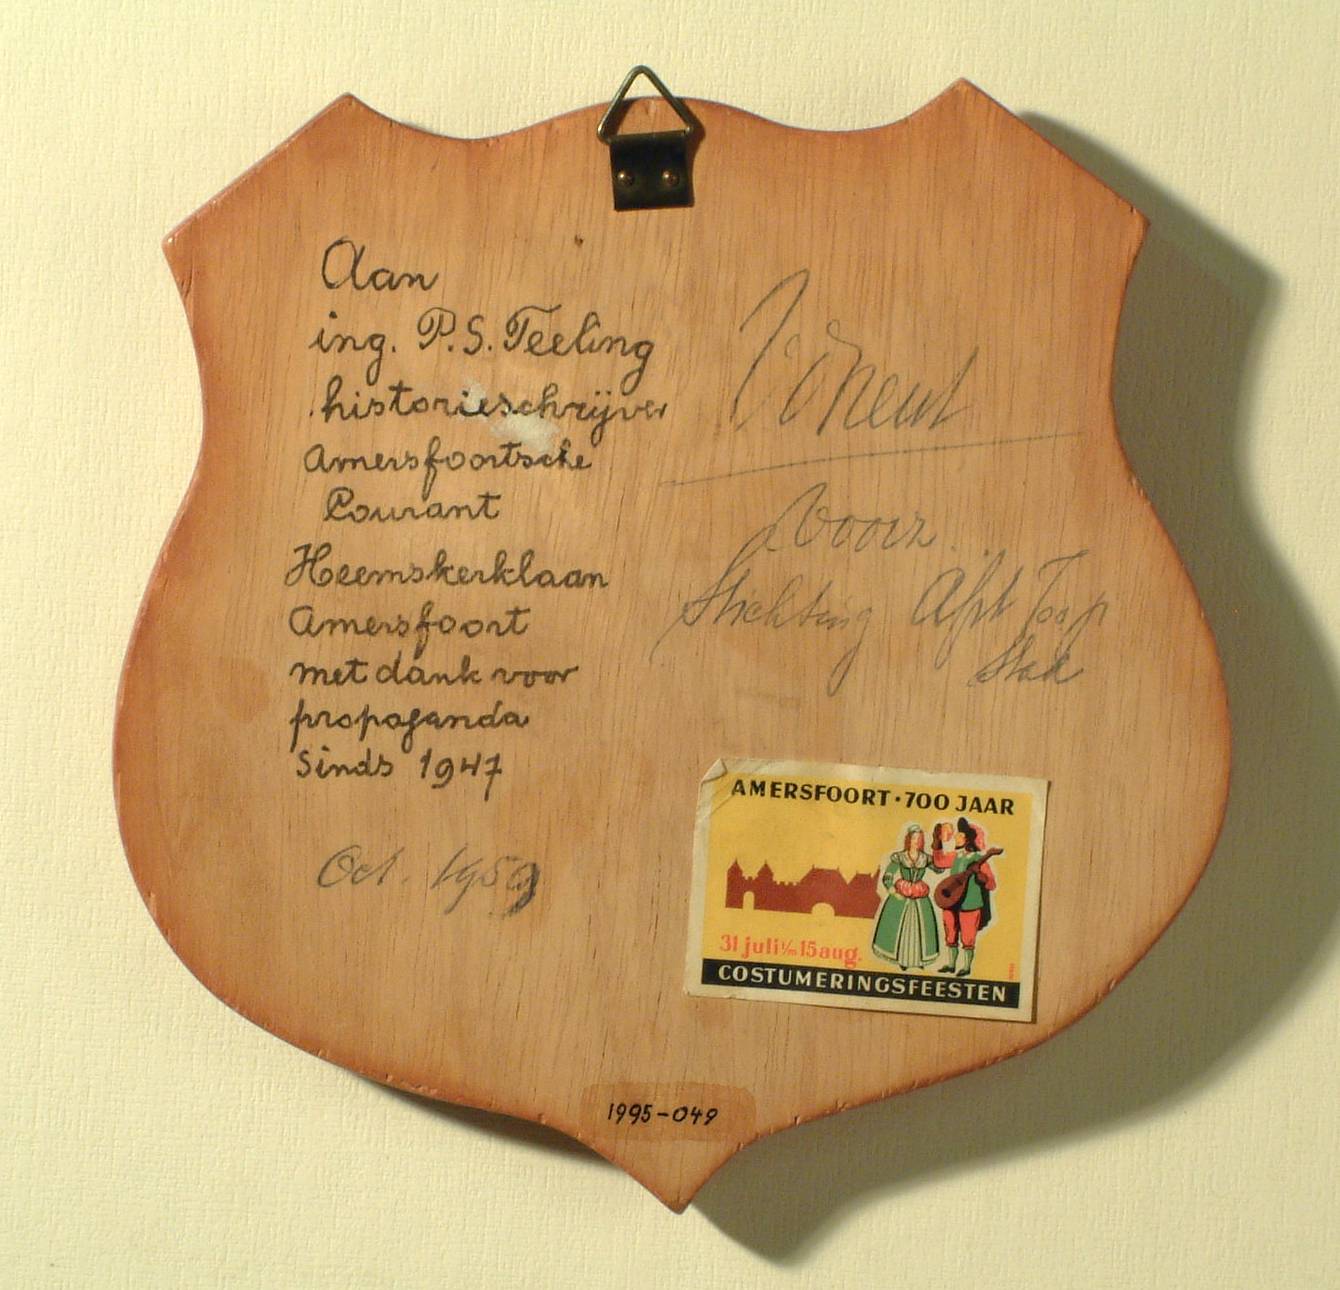 Aan
ing. P.S. Teeling
historieschrijver
Amersfoortsche
Courant
Heemskerklaan
Amersfoort
met dank voor
propaganda
sinds 1947
Oct. 1959
Voorz.
Stichting Afrt
AMERSFOORT · 700 JAAR
31 juli t/m 15 aug.
COSTUMERINGSFEESTEN
1995-049